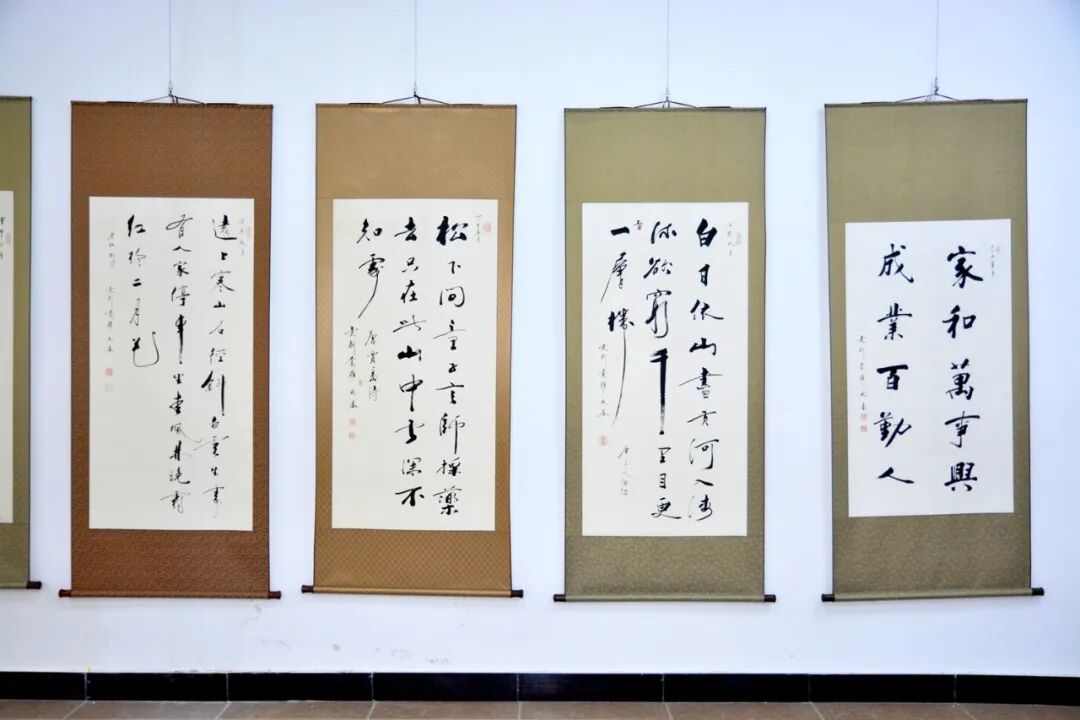 家和萬事興
成業百勤人
白日依山盡黃河入海
流欲窮千里目更
上
一層樓
松下問童子言師採藥
去只在此山中雲深不
知處
唐賈島詩
遠上寒山石徑斜白雲生處
有人家停車坐愛楓林晚霜
紅於二月花